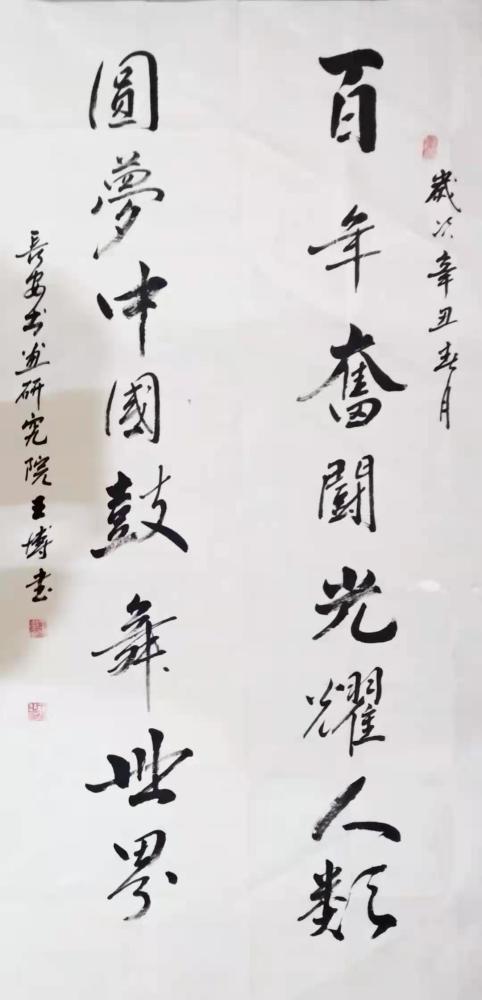 歲次辛丑春月
百年奮鬪光耀人類
圓夢中國鼓舞世界
長安书畫研究院王博书